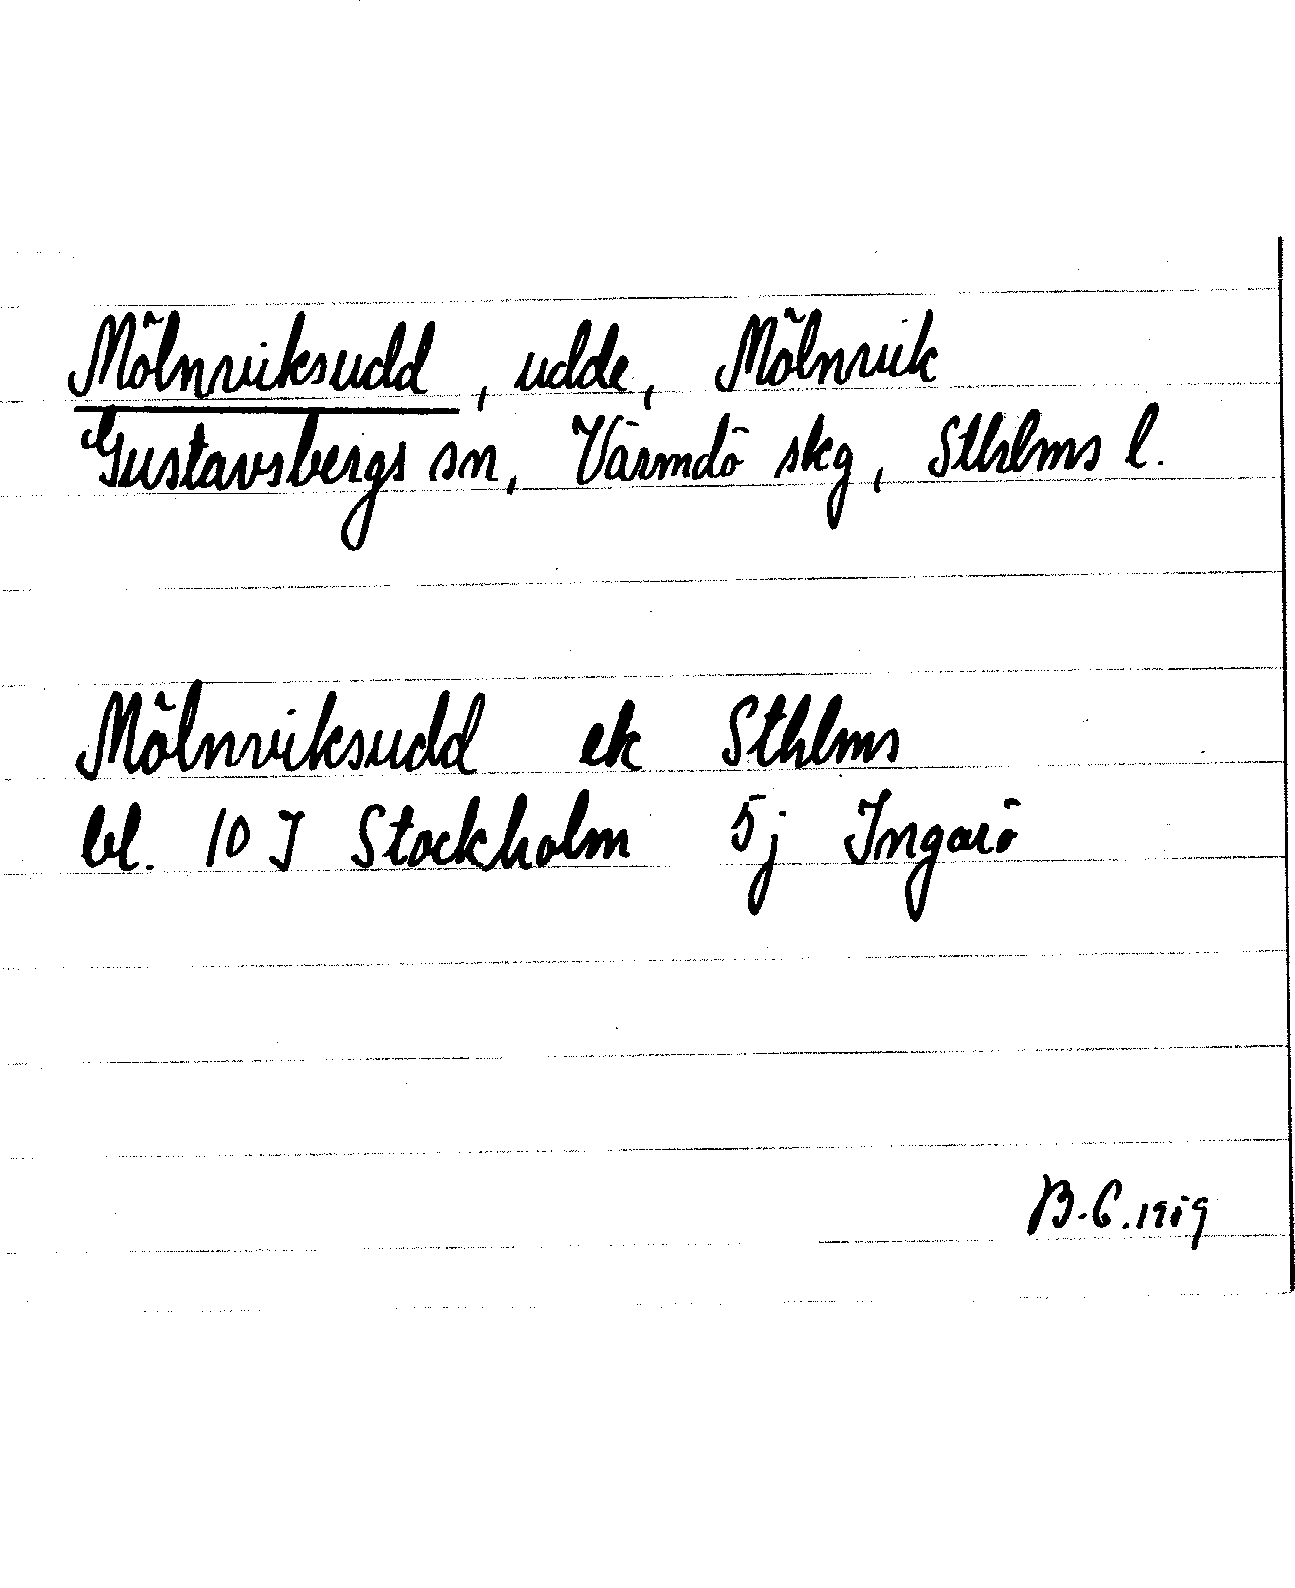 Mölnviksudd, udde, Mölnvik
Gustavsbergs sn, Värmdö skg, Sthlms l.
Mölnviksudd ek Sthlms
bl. 10 I Stockholm 5j Ingarö
B.C.